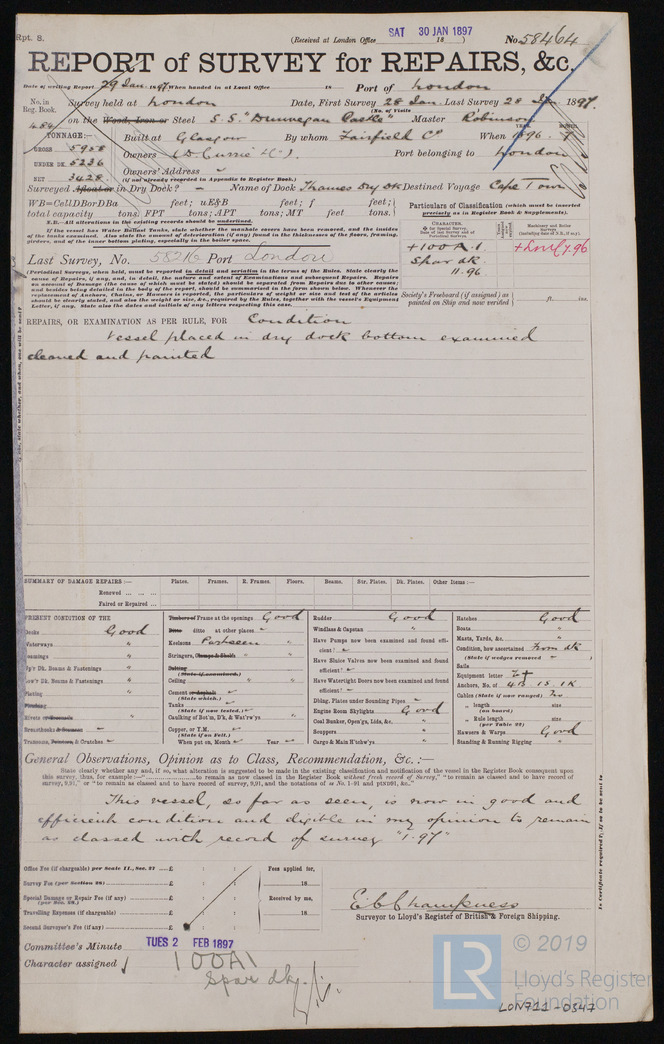 Rpt. 8.
(Received at London Office SAT 30 JAN 1897 18 )
No. 58464
REPORT of SURVEY for REPAIRS, &c.
Date of writing Report 29 Jan 1897 When handed in at Local Office 18 Port of London
No. in Reg. Book. Survey held at London Date, First Survey 28 Jan Last Survey 28 Jan 1897.
(No. of Visits )
on the Wood, Iron or Steel S.S. "Dunvegan Castle" Master Robinson
TONNAGE:— Built at Glasgow By whom Fairfield Co When 1896. 7
GROSS 5958
Owners (D. Currie & Co). Port belonging to London
UNDER DK. 5236
Owners' Address
NET 3428 (if not already recorded in Appendix to Register Book.)
Surveyed Afloat or in Dry Dock? Name of Dock Thames Dry Dk Destined Voyage Cape Town
WB=CellDBorDBa feet; uE&B feet; f feet
total capacity tons; FPT tons; APT tons; MT feet tons.
N.B.—All alterations in the existing records should be underlined.
If the vessel has Water Ballast Tanks, state whether the manhole covers have been removed, and the insides of the tanks examined. Also state the amount of deterioration (if any) found in the thicknesses of the floors, framing, girders, and of the inner bottom plating, especially in the boiler space.
Particulars of Classification (which must be inserted precisely as in Register Book & Supplements).
CHARACTER.
+100A.1
Spar dk
11.96
+LMC 7.96
Last Survey, No. 58216 Port London
(Periodical Surveys, when held, must be reported in detail and seriatim in the terms of the Rules. State clearly the cause of Repairs, if any, and, in detail, the nature and extent of Examinations and subsequent Repairs. Repairs on account of Damage (the cause of which must be stated) should be separated from Repairs due to other causes; and besides being detailed in the body of the report, should be summarised in the form given below. Whenever the replacement of Anchors, Chains, or Hawsers is reported, the particulars of weight or size and test of the articles should be clearly stated, and also the weight or size, &c., required by the Rules, together with the vessel's Equipment Letter, if any. State also the dates and initials of any letters respecting this case.
Society's Freeboard (if assigned) as painted on Ship and now verified } ft. ins.
REPAIRS, OR EXAMINATION AS PER RULE, FOR Condition
Vessel placed in dry dock bottom examined
cleaned and painted
SUMMARY OF DAMAGE REPAIRS:— Plates. Frames. R. Frames. Floors. Beams. Str. Plates. Dk. Plates. Other Items:—
Renewed ... ... ...
Faired or Repaired ...
PRESENT CONDITION OF THE
Decks Good
Waterways "
Coamings "
Up'r Dk. Beams & Fastenings "
Low'r Dk. Beams & Fastenings "
Plating "
Rivets "
Breasthooks
Transoms, Pointers & Crutches
Timbers or Frame at the openings Good
Ditto ditto at other places
Keelsons Part seen
Stringers, Clamps & Shelfs "
Ceiling "
Cement or Asphalt
(State which.)
Tanks
(State if now tested.)
Caulking of Bot'm, D'k, & Wat'rw'ys "
Copper, or Y.M.
(State if on Felt.)
When put on, Month Year
Rudder Good
Windlass & Capstan "
Have Pumps now been examined and found efficient?
Have Sluice Valves now been examined and found efficient?
Have Watertight Doors now been examined and found efficient?
Dbling. Plates under Sounding Pipes
Engine Room Skylights Good
Coal Bunker, Open'gs, Lids, &c. "
Scuppers "
Cargo & Main H'tchw'ys "
Hatches Good
Boats "
Masts, Yards, &c. "
Condition, how ascertained From dk
(State if wedges removed )
Sails
Equipment letter
Anchors, No. of 4B. 1S. 1K
Cables (State if now ranged) No
" length size
(on board)
" Rule length size
(per Table 22)
Hawsers & Warps Good
Standing & Running Rigging "
General Observations, Opinion as to Class, Recommendation, &c. :—
State clearly whether any, and if, so, what alteration is suggested to be made in the existing classification and notification of the vessel in the Register Book consequent upon this survey, thus, for example:—
This vessel, so far as seen, is now in good and
efficient condition and eligible in my opinion to remain
as classed with record of survey "1.97"
Office Fee (if chargeable) per Scale 11., Sec. 27 £ : :
Survey Fee (per Section 28) £ : :
Special Damage or Repair Fee (if any) £ : :
(per Sec. 28.)
Travelling Expenses (if chargeable) £ : :
Second Surveyor's Fee (if any) £ : :
Fees applied for,
18
Received by me,
18
E C Champness
Surveyor to Lloyd's Register of British & Foreign Shipping.
Committee's Minute TUES 2 FEB 1897
Character assigned 100A1
Spar dk.
LR
© 2019
Lloyd's Register
Foundation
LON711-0347